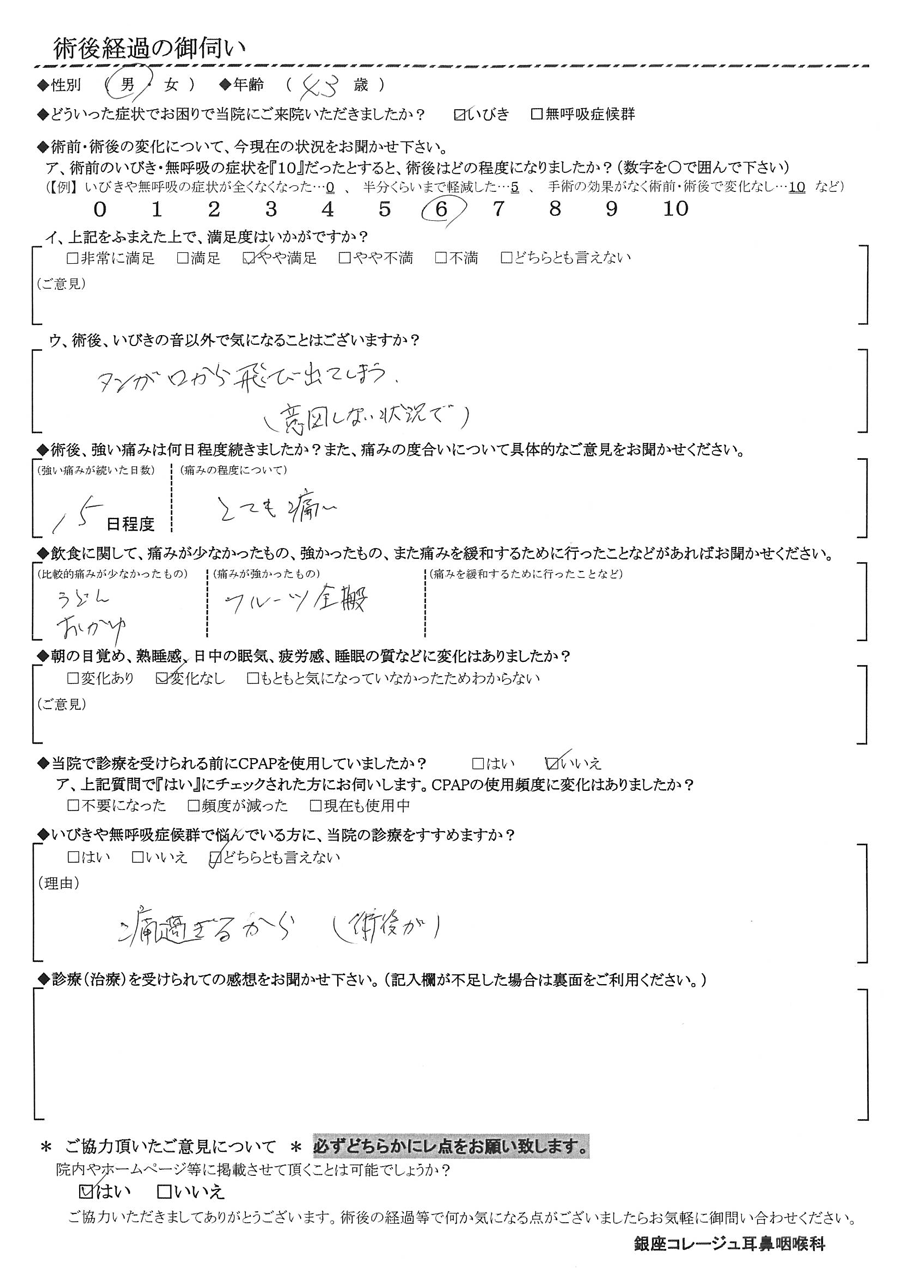 術後経過の御伺い
◆性別 ( 男 ・ 女 ) ◆年齢 ( 43 歳 )
◆どういった症状でお困りで当院にご来院いただきましたか? ☑いびき □無呼吸症候群
◆術前・術後の変化について、今現在の状況をお聞かせ下さい。
ア、術前のいびき・無呼吸の症状を『10』だったとすると、術後はどの程度になりましたか?(数字を〇で囲んで下さい)
(【例】 いびきや無呼吸の症状が全くなくなった…0 、 半分くらいまで軽減した…5 、 手術の効果がなく術前・術後で変化なし…10 など)
0 1 2 3 4 5 6 7 8 9 10
イ、上記をふまえた上で、満足度はいかがですか?
□非常に満足 □満足 ☑やや満足 □やや不満 □不満 □どちらとも言えない
(ご意見)
ウ、術後、いびきの音以外で気になることはございますか?
タンが口から飛び出てしまう.
(意図しない状況で)
◆術後、強い痛みは何日程度続きましたか?また、痛みの度合いについて具体的なご意見をお聞かせください。
(強い痛みが続いた日数) (痛みの程度について)
15 日程度 とても痛い
◆飲食に関して、痛みが少なかったもの、強かったもの、また痛みを緩和するために行ったことなどがあればお聞かせください。
(比較的痛みが少なかったもの) (痛みが強かったもの) (痛みを緩和するために行ったことなど)
うどん フルーツ全般
おかゆ
◆朝の目覚め、熟睡感、日中の眠気、疲労感、睡眠の質などに変化はありましたか?
□変化あり ☑変化なし □もともと気になっていなかったためわからない
(ご意見)
◆当院で診療を受けられる前にCPAPを使用していましたか? □はい ☑いいえ
ア、上記質問で『はい』にチェックされた方にお伺いします。CPAPの使用頻度に変化はありましたか?
□不要になった □頻度が減った □現在も使用中
◆いびきや無呼吸症候群で悩んでいる方に、当院の診療をすすめますか?
□はい □いいえ ☑どちらとも言えない
(理由)
痛過ぎるから (術後が)
◆診療(治療)を受けられての感想をお聞かせ下さい。(記入欄が不足した場合は裏面をご利用ください。)
＊ ご協力頂いたご意見について ＊ 必ずどちらかにレ点をお願い致します。
院内やホームページ等に掲載させて頂くことは可能でしょうか?
☑はい □いいえ
ご協力いただきましてありがとうございます。術後の経過等で何か気になる点がございましたらお気軽に御問い合わせください。
銀座コレージュ耳鼻咽喉科